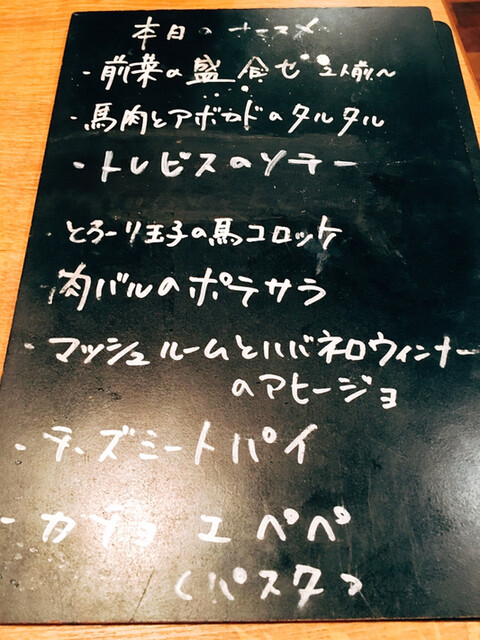 本日のオススメ
・前菜の盛合せ 2人前〜
・馬肉とアボカドのタルタル
・トレビスのソテー
・とろーり玉子の馬コロッケ
肉バルのポテサラ
・マッシュルームとハバネロウィンナー
のアヒージョ
・チーズミートパイ
・カチョ エ ペペ
(パスタ)